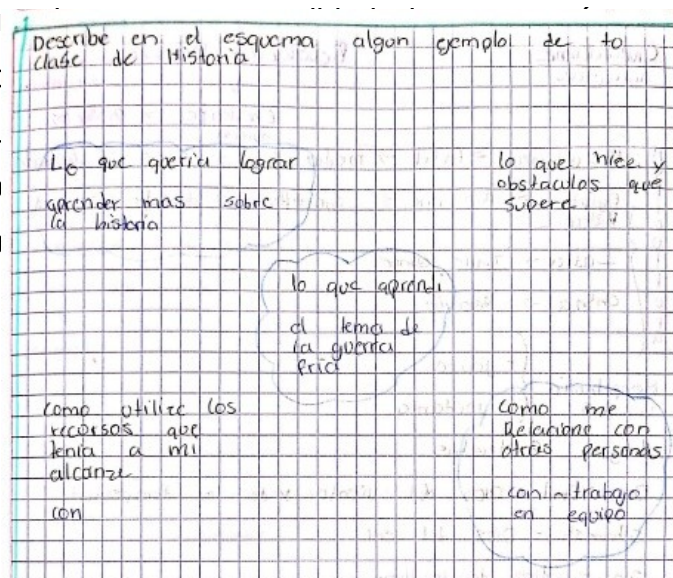 Describe en el esquema algun ejemplo de to
clase de Historia
Lo que queria lograr
aprender mas sobre
la historia
lo que hice y
obstaculos que
supere
lo que aprendi
el tema de
la guerra
fria
como utilize los
recursos que
tenia a mi
alcanze
con
como me
Relacione con
otras personas
con trabajo
en equipo